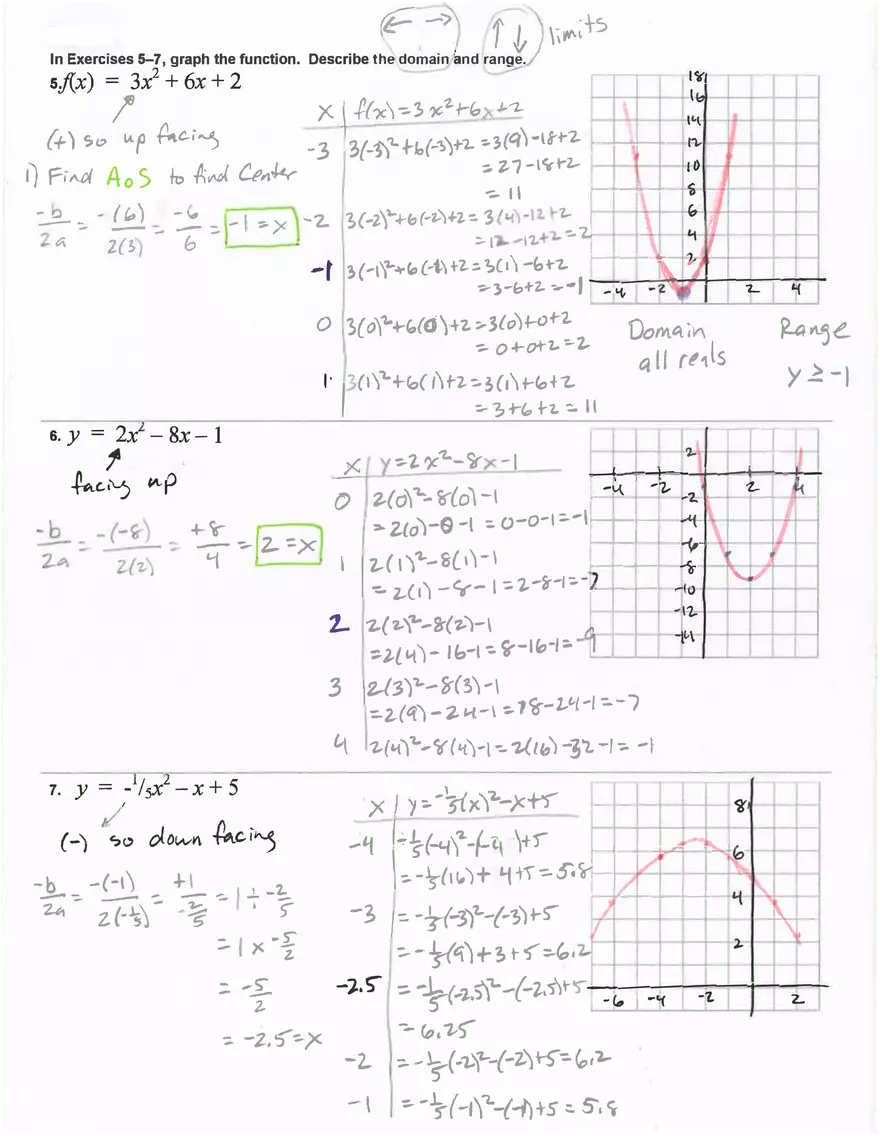 ← → ↑ ↓ limits
In Exercises 5–7, graph the function. Describe the domain and range.
5. f(x) = 3x² + 6x + 2
(+) so up facing
1) Find AoS to find Center
-b/2a = -(6)/2(3) = -6/6 = -1 = x
x | f(x) = 3x²+6x+2
-3 | 3(-3)²+6(-3)+2 = 3(9)-18+2
= 27-18+2
= 11
-2 | 3(-2)²+6(-2)+2 = 3(4)-12+2
= 12-12+2 = 2
-1 | 3(-1)²+6(-1)+2 = 3(1)-6+2
= 3-6+2 = -1
0 | 3(0)²+6(0)+2 = 3(0)+0+2
= 0+0+2 = 2
1 | 3(1)²+6(1)+2 = 3(1)+6+2
= 3+6+2 = 11
18
16
14
12
10
8
6
4
2
-4 -2 2 4
Domain Range
all reals y ≥ -1
6. y = 2x² – 8x – 1
facing up
-b/2a = -(-8)/2(2) = +8/4 = 2 = x
x | y = 2x²-8x-1
0 | 2(0)²-8(0)-1
= 2(0)-0-1 = 0-0-1 = -1
1 | 2(1)²-8(1)-1
= 2(1)-8-1 = 2-8-1 = -7
2 | 2(2)²-8(2)-1
= 2(4)-16-1 = 8-16-1 = -9
3 | 2(3)²-8(3)-1
= 2(9)-24-1 = 18-24-1 = -7
4 | 2(4)²-8(4)-1 = 2(16)-32-1 = -1
2
-4 -2 2 4
-2
-4
-6
-8
-10
-12
-14
7. y = -1/5x² – x + 5
(-) so down facing
-b/2a = -(-1)/2(-1/5) = +1/-2/5 = 1/1 ÷ -2/5
= 1 x -5/2
= -5/2
= -2.5 = x
x | y = -1/5(x)²-x+5
-4 | -1/5(-4)²-(-4)+5
= -1/5(16)+4+5 = 5.8
-3 | = -1/5(-3)²-(-3)+5
= -1/5(9)+3+5 = 6.2
-2.5 | = -1/5(-2.5)²-(-2.5)+5
= 6.25
-2 | = -1/5(-2)²-(-2)+5 = 6.2
-1 | = -1/5(-1)²-(-1)+5 = 5.8
8
6
4
2
-6 -4 -2 2